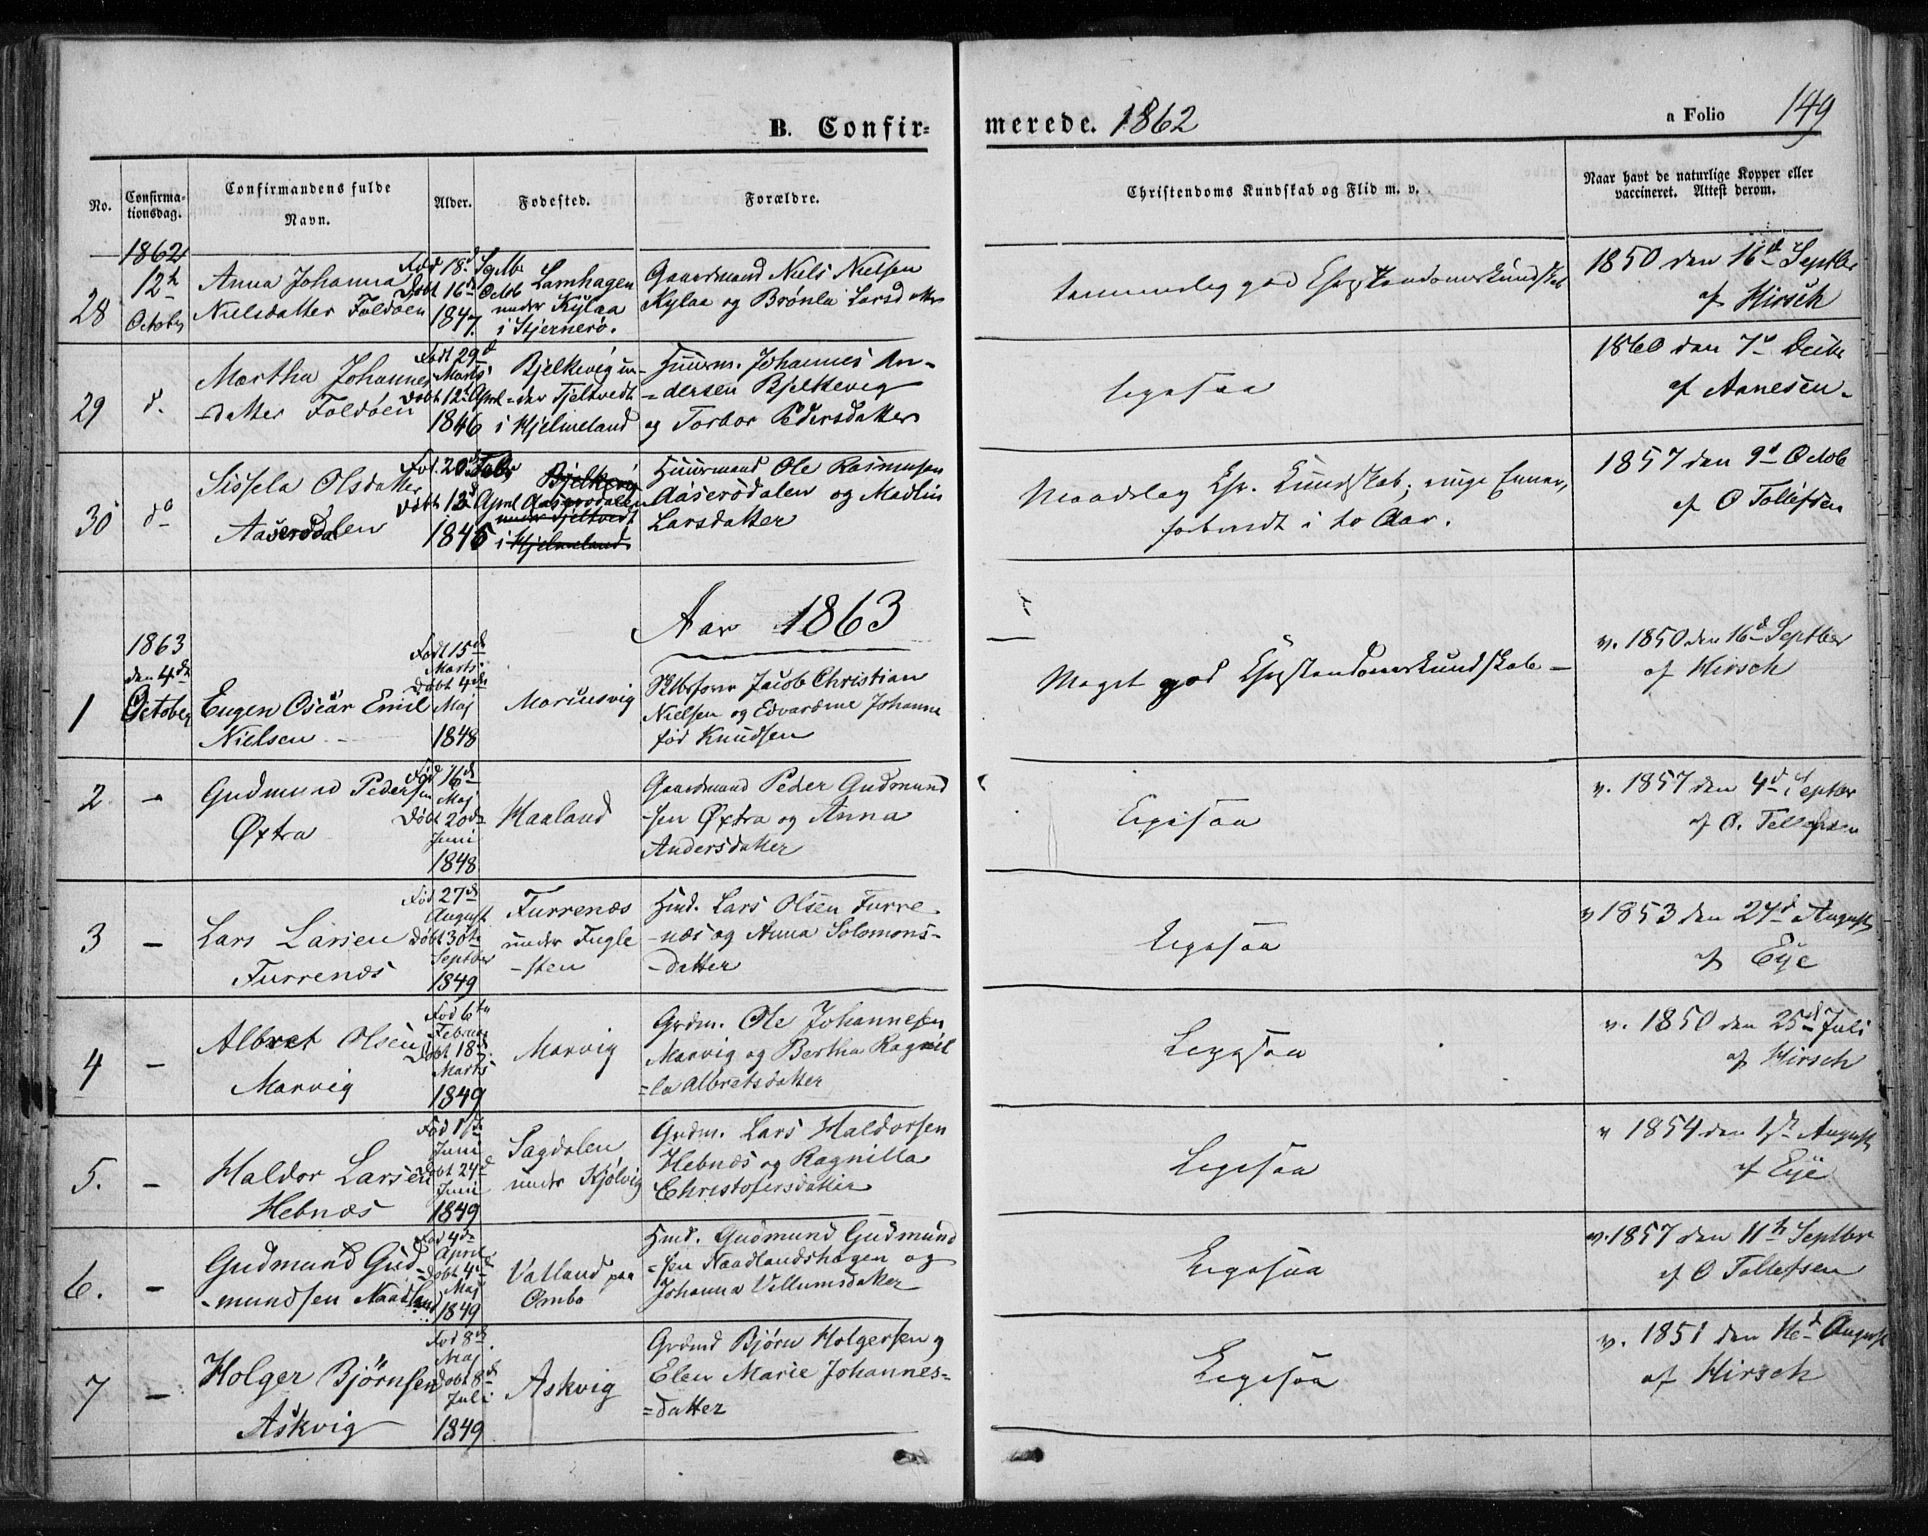 B. Confir=
merede. 1862
a Folio
149
No.
Confirma-
tionsdag.
Confirmandens fulde
Navn.
Alder.
Fødested.
Forældre.
Christendoms Kundskab og Flid m. v.
Naar havt de naturlige Kopper eller
vaccineret. Attest derom.
28
1862
12te
October
Anna Johanna
Nielsdatter Foldøen
Fød 18d Sptbr
Døbt 16de Octob
1847.
Lamhagen
under Kylaa
i Stjernerø.
Gaardmand Niels Nielsen
Kylaa og Brønla Larsdatter
temmelig god Christendomskundskab
1850 den 16d Septbr
af Hirsch
29
d.
Martha Johannes
-datter Foldøen
Født 29d
Marts
Døbt 12. April
1846
Bjelkevig un-
=der Tjeltvedt
i Hjelmeland
Huusm. Johannes An-
=dersen Bjelkevig
og Torbor Pedersdatter
ligesaa
1860 den 7d Decbr
af Aanesen.
30
do
Sissela Olsdatter
Aaserødalen
Fød. 20d Febr
Døbt 13d April
1845
Bjelkevig
Aaserødalen
under Tjeltvedt
i Hjelmeland.
Huusmand Ole Rasmusen
Aaserødalen og Madlin
Larsdatter
Maadelig Chr. Kundskab; svage Evner,
forberedt i to Aar.
1857 den 9d Octob
af O Tollefsen
Aar 1863
1
1863
den 4de
October
Eugen Oscar Emil
Nielsen
Født 15de
Marts
Døbt 4de
Maj
1848
Marcusvig
Jacob Christian
Nielsen og Edvardine Johanne
fød Knudsen
Meget god Christendomskundskab
v. 1850 den 16d Septber
af Hirsch
2.
-
Gudmund Pedersen
Øxtra
Fød 16de
Maj
Døbt 20de
Juni
1848
Haaland
Gaardmand Peder Gudmund
-sen Øxtra og Anna
Andersdatter
Ligesaa
v. 1857 den 4d Septbr
af O. Tollefsen
3
-
Lars Larsen
Furrenæs
Fød 27d
August
Døbt 30te
Septber
1849
Furrenæs
under Fugle
-sten
Hmd. Lars Olsen Furre
-næs og Anna Solomons-
-datter
Ligesaa
v 1853 den 24d August
af Eye
4
-
Albret Olsen
Marvig
Fød 6te
Februar
Døbt 18d
Marts
1849
Marvig
Grdm. Ole Johannesen
Marvig og Bertha Ragnil
=la Albretsdatter
Ligesaa
v. 1850 den 25d Juli
af Hirsch
5.
-
Haldor Larsen
Hebnæs
Fød 1ste
Juni
Døbt 24d
Juni
1849
Sagdalen
under Kjølvig
Grdm. Lars Haldorsen
Hebnæs og Ragnilla
Christofersdatter
Ligesaa
v 1854 den 1ste August
af Eye
6.
-
Gudmund Gud
-mundsen Naadland
Fød 4de
April
Døbt 4de
Maj
1849
Vatland paa
Ombo
Hmd. Gudmund Gudmund
=sen Naadlandshagen og
Johanna Villumsdatter
Ligesaa
v. 1857 den 11te Septbr
af O Tollefsen
7
-
Holger Bjørnsen
Askvig
Fød 8d
Maj
Døbt 8d
Juli
1849
Askvig
Grdmd Bjørn Holgersen og
Elen Marie Johannes=
=datter
Ligesaa
v. 1851 den 16d August
af Hirsch